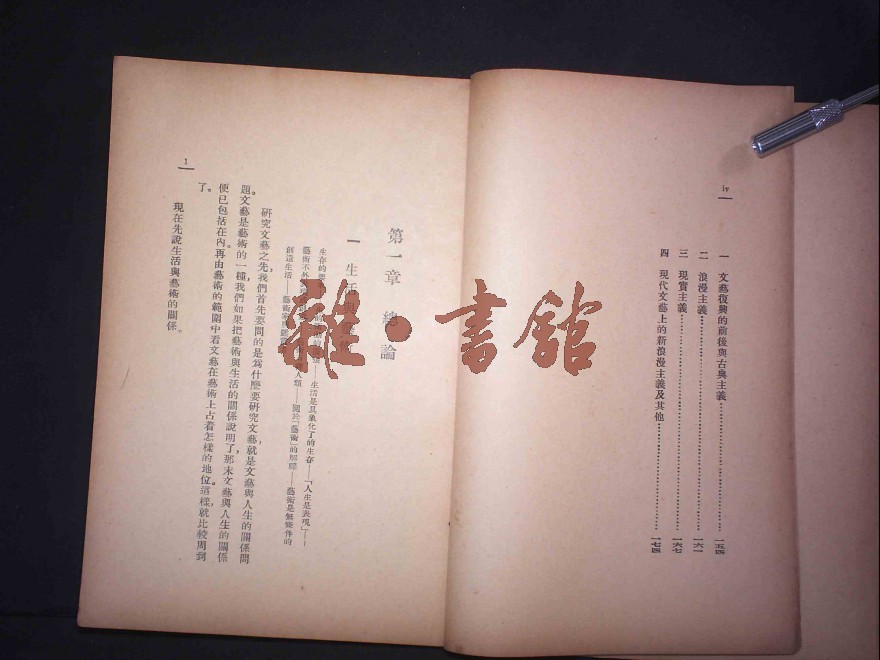 iv
一 文藝復興的前後與古典主義……一五四
二 浪漫主義……一六一
三 現實主義……一六七
四 現代文藝上的新浪漫主義及其他……一七四
1
第一章 總論
一 生活
生存的 生活是具象化了的生存——「人生是表現」——
藝術不外 人類——關於「藝術」的解釋——藝術是無條件的
創造生活——藝術家
研究文藝之先,我們首先要問的是爲什麼要研究文藝,就是文藝與人生的關係問
題。文藝是藝術的一種,我們如果把藝術與生活的關係說明了,那末文藝與人生的關係
便已包括在內。再由藝術的範圍中看文藝在藝術上占着怎樣的地位。這樣,就比較周到
了。
現在先說生活與藝術的關係。
雜·書館